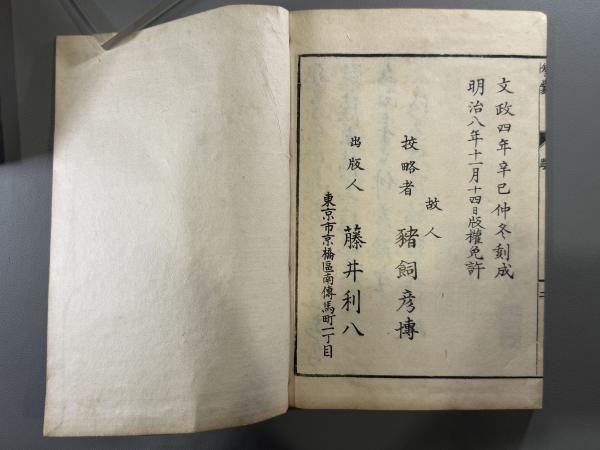 文政四年辛巳仲冬刻成
明治八年十一月十四日版權免許
故人
挍略者 豬飼彦博
出版人 藤井利八
東京市京橋區南傳馬町一丁目